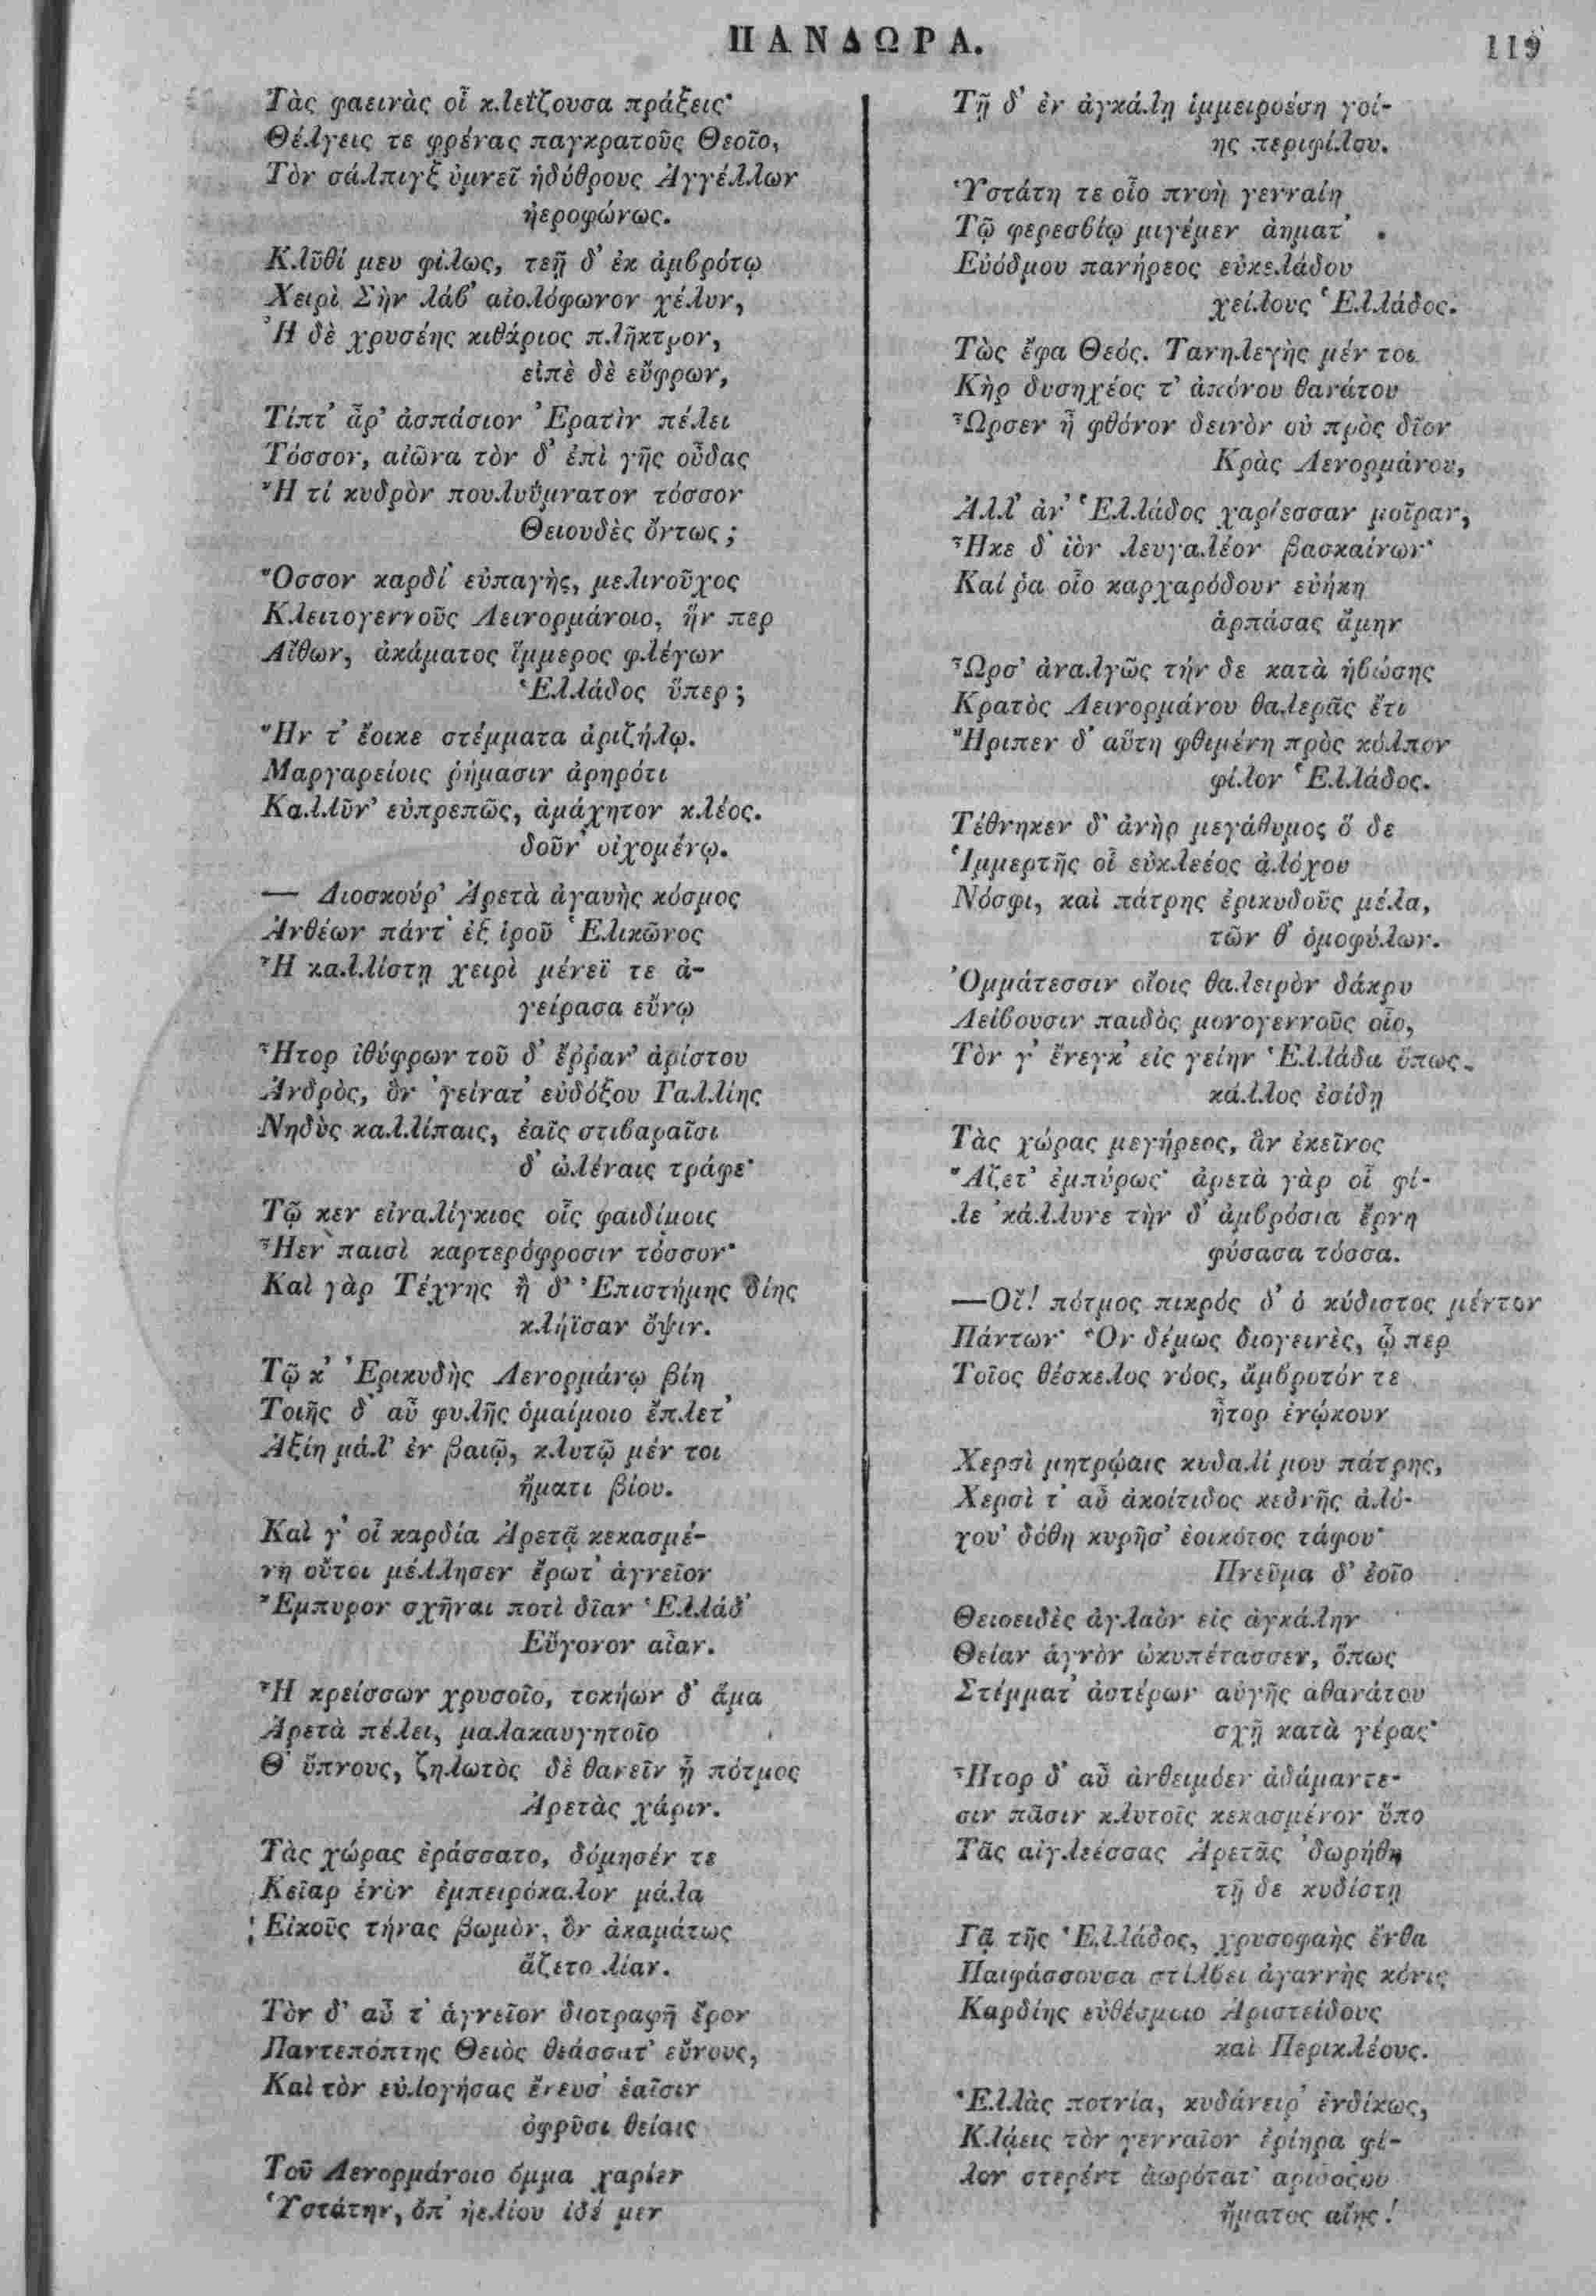 ΠΑΝΔΩΡΑ.
119
Τὰς φαεινὰς οἷ κλεΐζουσα πράξεις·
Θέλγεις τε φρένας παγκρατοῦς Θεοῖο,
Τὸν σάλπιγξ ὑμνεῖ ἡδύθρους Ἀγγέλλων
ἠεροφώνως.
Κλῦθί μευ φίλως, τεῇ δ' ἐκ ἀμβρότῳ
Χειρὶ Σὴν λάβ' αἰολόφωνον χέλυν,
Ἠ δὲ χρυσέης κιθάριος πλῆκτρον,
εἰπὲ δὲ εὔφρων,
Τίπτ' ἆρ' ἀσπάσιον Ἐρατὶν πέλει
Τόσσον, αἰῶνα τὸν δ' ἐπὶ γῆς οὖδας
Ἢ τί κυδρὸν πουλυΰμνατον τόσσον
Θειουδὲς ὄντως ;
Ὅσσον καρδί' εὐπαγὴς, μελινοῦχος
Κλειτογεννοῦς Λεινορμάνοιο, ἥν περ
Αἴθων, ἀκάματος ἵμμερος φλέγων
Ἑλλάδος ὕπερ ;
Ἥν τ' ἔοικε στέμματα ἀριζήλῳ.
Μαργαρείοις ῥήμασιν ἀρηρότι
Καλλῦν' εὐπρεπῶς, ἀμάχητον κλέος.
δοῦν' οἰχομένῳ.
— Διοσκούρ' Ἀρετὰ ἀγαυὴς κόσμος
Ἀνθέων πάντ' ἐξ ἱροῦ Ἑλικῶνος
Ἣ καλλίστῃ χειρὶ μένεϊ τε ἀ-
γείρασα εὔνῳ
Ἦτορ ἰθύφρων τοῦ δ' ἔῤῥαν' ἀρίστου
Ἀνδρὸς, ὃν 'γείνατ' εὐδόξου Γαλλίης
Νηδὺς καλλίπαις, ἑαῖς στιβαραῖσι
δ' ὠλέναις τράφε·
Τῷ κεν εἰναλίγκιος οἷς φαιδίμοις
Ἦεν παισὶ καρτερόφροσιν τόσσον·
Καὶ γὰρ Τέχνης ἢ δ' Ἐπιστήμης δίης
κλήϊσαν ὄψιν.
Τῷ κ' Ἐρικυδὴς Λενορμάνῳ βίη
Τοιῆς δ' αὖ φυλῆς ὁμαίμοιο ἔπλετ'
Ἀξίη μάλ' ἐν βαιῷ, κλυτῷ μέν τοι
ἤματι βίου.
Καὶ γ' οἷ καρδία Ἀρετᾷ κεκασμέ-
νη οὔτοι μέλλησεν ἔρωτ' ἁγνεῖον
Ἔμπυρον σχῆναι ποτὶ δῖαν Ἑλλάδ'
Εὔγονον αἶαν.
Ἣ κρείσσων χρυσοῖο, τοκήων δ' ἅμα
Ἀρετὰ πέλει, μαλακαυγητοῖο
Θ' ὕπνους, ζηλωτὸς δὲ θανεῖν ᾗ πότμος
Ἀρετὰς χάριν.
Τὰς χώρας ἐράσσατο, δόμησέν τε
Κεῖαρ ἑνὸν ἐμπειρόκαλον μάλα
Εἰκοῦς τήνας βωμὸν, ὃν ἀκαμάτως
ἅζετο λίαν.
Τὸν δ' αὖ τ' ἁγνεῖον διοτραφῆ ἔρον
Παντεπόπτης Θειὸς θεάσσατ' εὔνους,
Καὶ τὸν εὐλογήσας ἔνευσ' ἑαῖσιν
ὀφρῦσι θείαις
Τοῦ Λενορμάνοιο ὄμμα χαρίεν
Ὑστάτην, ὄπ' ἠελίου ἰδέ μεν
Τῇ δ' ἐν ἀγκάλῃ ἱμμειροέσῃ γοί-
ης περιφίλου.
Ὑστάτη τε οἷο πνοὴ γενναίη
Τῷ φερεσβίῳ μιγέμεν ἀηματ'
Εὐόδμου πανήρεος εὐκελάδου
χείλους Ἑλλάδος.
Τὼς ἔφα Θεός. Τανηλεγὴς μέν τοι
Κὴρ δυσηχέος τ' ἀπόνου θανάτου
Ὦρσεν ᾗ φθόνον δεινὸν οὐ πρὸς δῖον
Κρὰς Λενορμάνου,
Ἀλλ' ἀν' Ἑλλάδος χαρίεσσαν μοῖραν,
Ἧκε δ' ἰὸν λευγαλέον βασκαίνων·
Καί ῥα οἷο καρχαρόδουν εὐήκη
ἁρπάσας ἄμην
Ὦρσ' ἀναλγῶς τήν δε κατὰ ἡβώσης
Κρατὸς Λεινορμάνου θαλερᾶς ἔτι
Ἤριπεν δ' αὕτη φθιμένη πρὸς κόλπον
φίλον Ἑλλάδος.
Τέθνηκεν δ' ἀνὴρ μεγάθυμος ὅ δε
Ἱμμερτῆς οἷ εὐκλεέος ἀλόχου
Νόσφι, καὶ πάτρης ἐρικυδοῦς μέλα,
τῶν θ' ὁμοφύλων.
Ὀμμάτεσσιν οἵοις θαλειρὸν δάκρυ
Λείβουσιν παιδὸς μονογεννοῦς οἷο,
Τὸν γ' ἔνεγκ' εἰς γείην Ἑλλάδα ὅπως
κάλλος ἐσίδῃ
Τὰς χώρας μεγήρεος, ἃν ἐκεῖνος
Ἅζετ' ἐμπύρως· ἀρετὰ γὰρ οἷ φί-
λε 'κάλλυνε τὴν δ' ἀμβρόσια ἔρνη
φύσασα τόσσα.
—Οἴ! πότμος πικρός δ' ὁ κύδιστος μέντον
Πάντων· Ὃν δέμως διογεινὲς, ᾧ περ
Τοῖος θέσκελος νόος, ἄμβροτόν τε
ἦτορ ἐνῴκουν
Χερσὶ μητρῴαις κυδαλίμου πάτρης,
Χερσὶ τ' αὖ ἀκοίτιδος κεδνῆς ἀλό-
χου' δόθη κυρῆσ' ἐοικότος τάφου·
Πνεῦμα δ' ἑοῖο
Θειοειδὲς ἀγλαὸν εἰς ἀγκάλην
Θείαν ἁγνὸν ὠκυπέτασσεν, ὅπως
Στέμματ' ἀστέρων αὐγῆς αθανάτου
σχῇ κατὰ γέρας·
Ἦτορ δ' αὖ ἀνθειμόεν ἀδάμαντε-
σιν πᾶσιν κλυτοῖς κεκασμένον ὕπο
Τᾶς αἰγλεέσσας Ἀρετᾶς 'δωρήθη
τῇ δε κυδίστῃ
Γᾷ τῆς Ἑλλάδος, χρυσοφαὴς ἔνθα
Παιφάσσουσα στίλβει ἀγαννὴς κόνις
Καρδίης εὐθέσμοιο Ἀριστείδους
καὶ Περικλέους.
Ἑλλὰς ποτνία, κυδάνειρ' ἐνδίκως,
Κλᾴεις τὸν γενναῖον ἐρίηρα φί-
λον στερέντ' ἀωρότατ' αριδοξου
ἤματος αἴης !